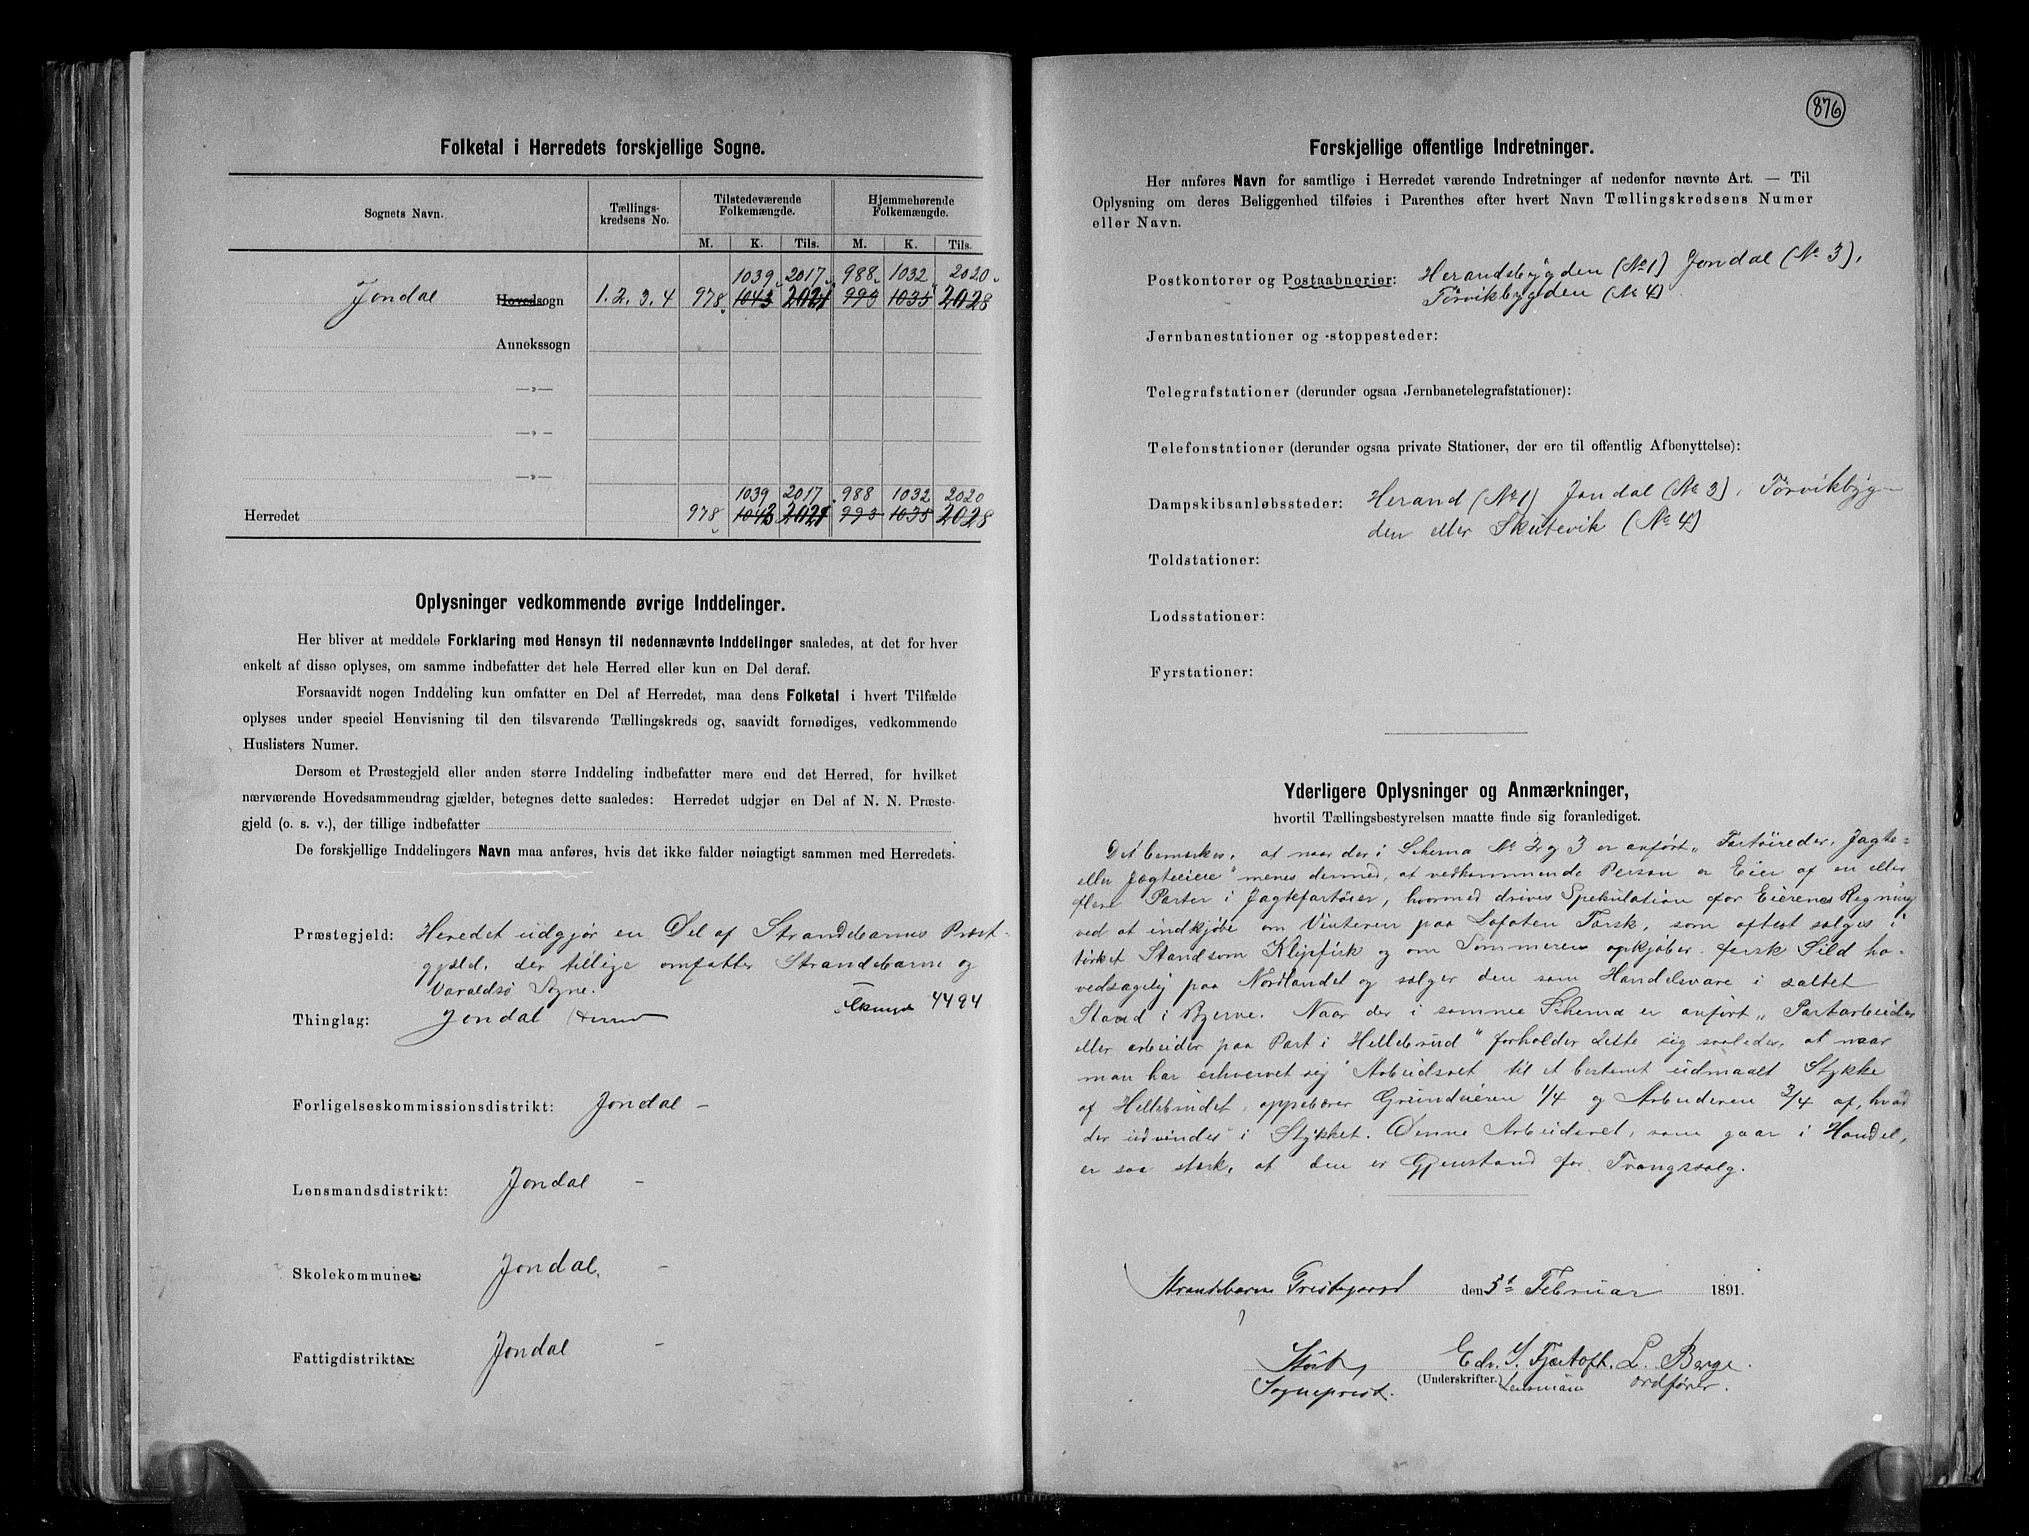 Folketal i Herredets forskjellige Sogne.
Sognets Navn.
Tællings-
kredsens No.
Tilstedeværende
Folkemængde.
Hjemmehørende
Folkemængde.
M. K. Tils. M. K. Tils.
1039 2017 988 1032 2020
Jondal Hovedsogn 1. 2. 3. 4 978 1043 2021 993 1035 2028
Annekssogn
—»—
—»—
—»—
1039 2017 988 1032 2020
Herredet 978 1043 2021 993 1035 2028
Oplysninger vedkommende øvrige Inddelinger.
Her bliver at meddele Forklaring med Hensyn til nedennævnte Inddelinger saaledes, at det for hver
enkelt af disse oplyses, om samme indbefatter det hele Herred eller kun en Del deraf.
Forsaavidt nogen Inddeling kun omfatter en Del af Herredet, maa dens Folketal i hvert Tilfælde
oplyses under speciel Henvisning til den tilsvarende Tællingskreds og, saavidt fornødiges, vedkommende
Huslisters Numer.
Dersom et Præstegjeld eller anden større Inddeling indbefatter mere end det Herred, for hvilket
nærværende Hovedsammendrag gjælder, betegnes dette saaledes: Herredet udgjør en Del af N. N. Præste-
gjeld (o. s. v.), der tillige indbefatter
De forskjellige Inddelingers Navn maa anføres, hvis det ikke falder nøiagtigt sammen med Herredets.
Præstegjeld: Heredet udgjør en Del af Strandebarms Præst-
gjeld, der tillige omfatter Strandebarm og
Varaldsö Sogne.
Thinglag: Jondal 4494
Forligelseskommissionsdistrikt: Jondal –
Lensmandsdistrikt: Jondal –
Skolekommune: Jondal. –
Fattigdistrikt: Jondal –
876
Forskjellige offentlige Indretninger.
Her anføres Navn for samtlige i Herredet værende Indretninger af nedenfor nævnte Art. — Til
Oplysning om deres Beliggenhed tilføies i Parenthes efter hvert Navn Tællingskredsens Numer
eller Navn.
Postkontorer og Postaabnerier: Herandsbygden (No 1) Jondal (No 3),
Törvikbygden (No 4)
Jernbanestationer og -stoppesteder:
Telegrafstationer (derunder ogsaa Jernbanetelegrafstationer):
Telefonstationer (derunder ogsaa private Stationer, der ere til offentlig Afbenyttelse):
Dampskibsanløbssteder: Herand (No 1) Jondal (No 3), Törvikbyg-
den eller Skutevik (No 4)
Toldstationer:
Lodsstationer:
Fyrstationer:
Yderligere Oplysninger og Anmærkninger,
hvortil Tællingsbestyrelsen maatte finde sig foranlediget.
Det bemærkes, at naar der i Schema No 2 og 3 er anført "Fartöireder, Jagte-
eller Jagteeiere" menes dermed, at vedkommende Person er Eier af en eller
flere Parter i Jagtefartöier, hvormed drives Spekulation for Eierenes Regning
ved at indkjöbe om Vinteren paa Lofoten Torsk, som oftest sælges i
törket Stand som Klipfisk og om Sommeren opkjöber fersk Sild ho-
vedsagelig paa Nordlandet og sælger den som Handelsvare i saltet
Stand i Bergen. Naar der i samme Schema er anført "Partarbeider
eller arbeider paa Part i Hellebrud" forholder dette sig saaledes, at naar
man har erhvervet sig Arbeidsret til et bestemt udmaalt Stykke
af Hellebrudet, oppebærer Grundeieren 1/4 og Arbeideren 3/4 af, hvad
der udvindes i Stykket. Denne Arbeidsret, som gaar i Handel,
er saa stærk, at den er Gjenstand for Tvangssalg.
Strandebarms Prestegaard den 5te Februar 1891.
Edv. S. Fjærtoft. L. Berge.
(Underskrifter.)
Sogneprest. Lensmann ordfører.